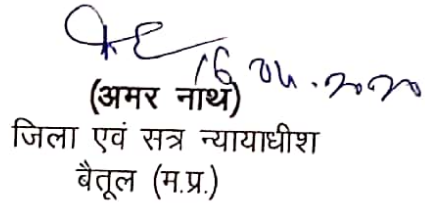 16.04.2020
(अमर नाथ)
जिला एवं सत्र न्यायाधीश
बैतूल (म.प्र.)